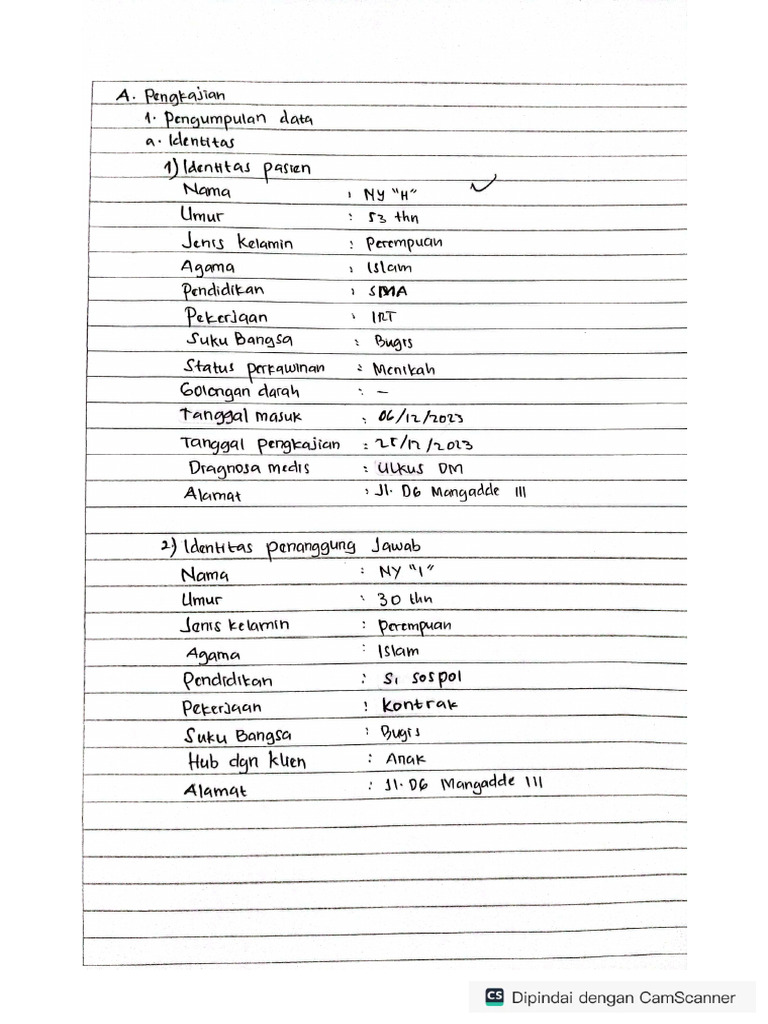 A. Pengkajian
1. Pengumpulan data
a. Identitas
1) Identitas pasien
Nama : NY "H"
Umur : 53 thn
Jenis Kelamin : Perempuan
Agama : Islam
Pendidikan : SMA
Pekerjaan : IRT
Suku Bangsa : Bugis
Status perkawinan : Menikah
Golongan darah : -
Tanggal masuk : 06/12/2023
Tanggal pengkajian : 25/12/2023
Diagnosa medis : Ulkus DM
Alamat : Jl. DG Mangadde III
2) Identitas penanggung Jawab
Nama : NY "I"
Umur : 30 thn
Jenis kelamin : perempuan
Agama : Islam
Pendidikan : S1 sospol
Pekerjaan : Kontrak
Suku Bangsa : Bugis
Hub dgn klien : Anak
Alamat : Jl. DG Mangadde III
CS Dipindai dengan CamScanner